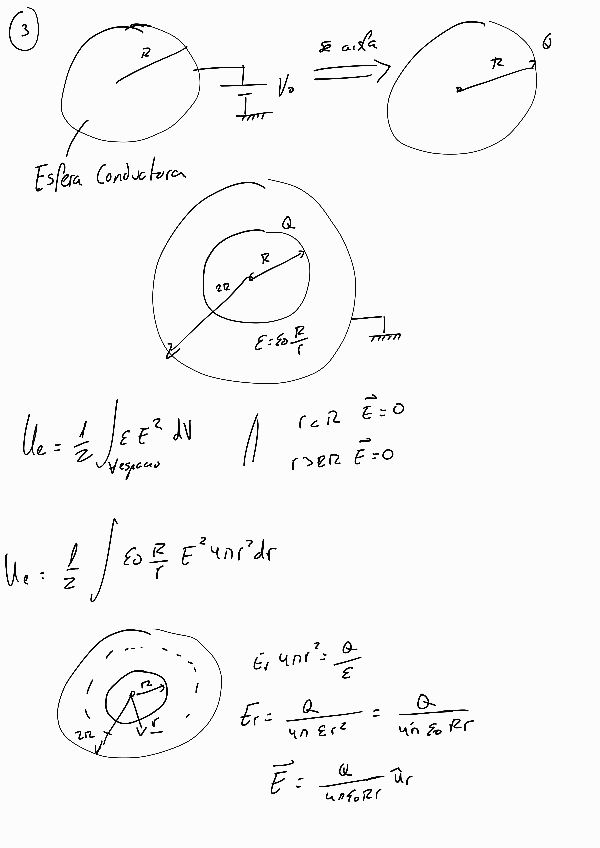 3
R
V₀
se aisla
R
Q
Esfera Conductora
Q
R
2R
ε = ε₀ R/r
Uₑ = 1/2 ∫ ε E² dV // r < R E⃗ = 0
V espacio
r > 2R E⃗ = 0
Uₑ = 1/2 ∫ ε₀ R/r E² 4π r² dr
R
2R
r
Eᵣ 4π r² = Q/ε
Eᵣ = Q/(4π ε r²) = Q/(4π ε₀ R r)
E⃗ = Q/(4π ε₀ R r) ûᵣ